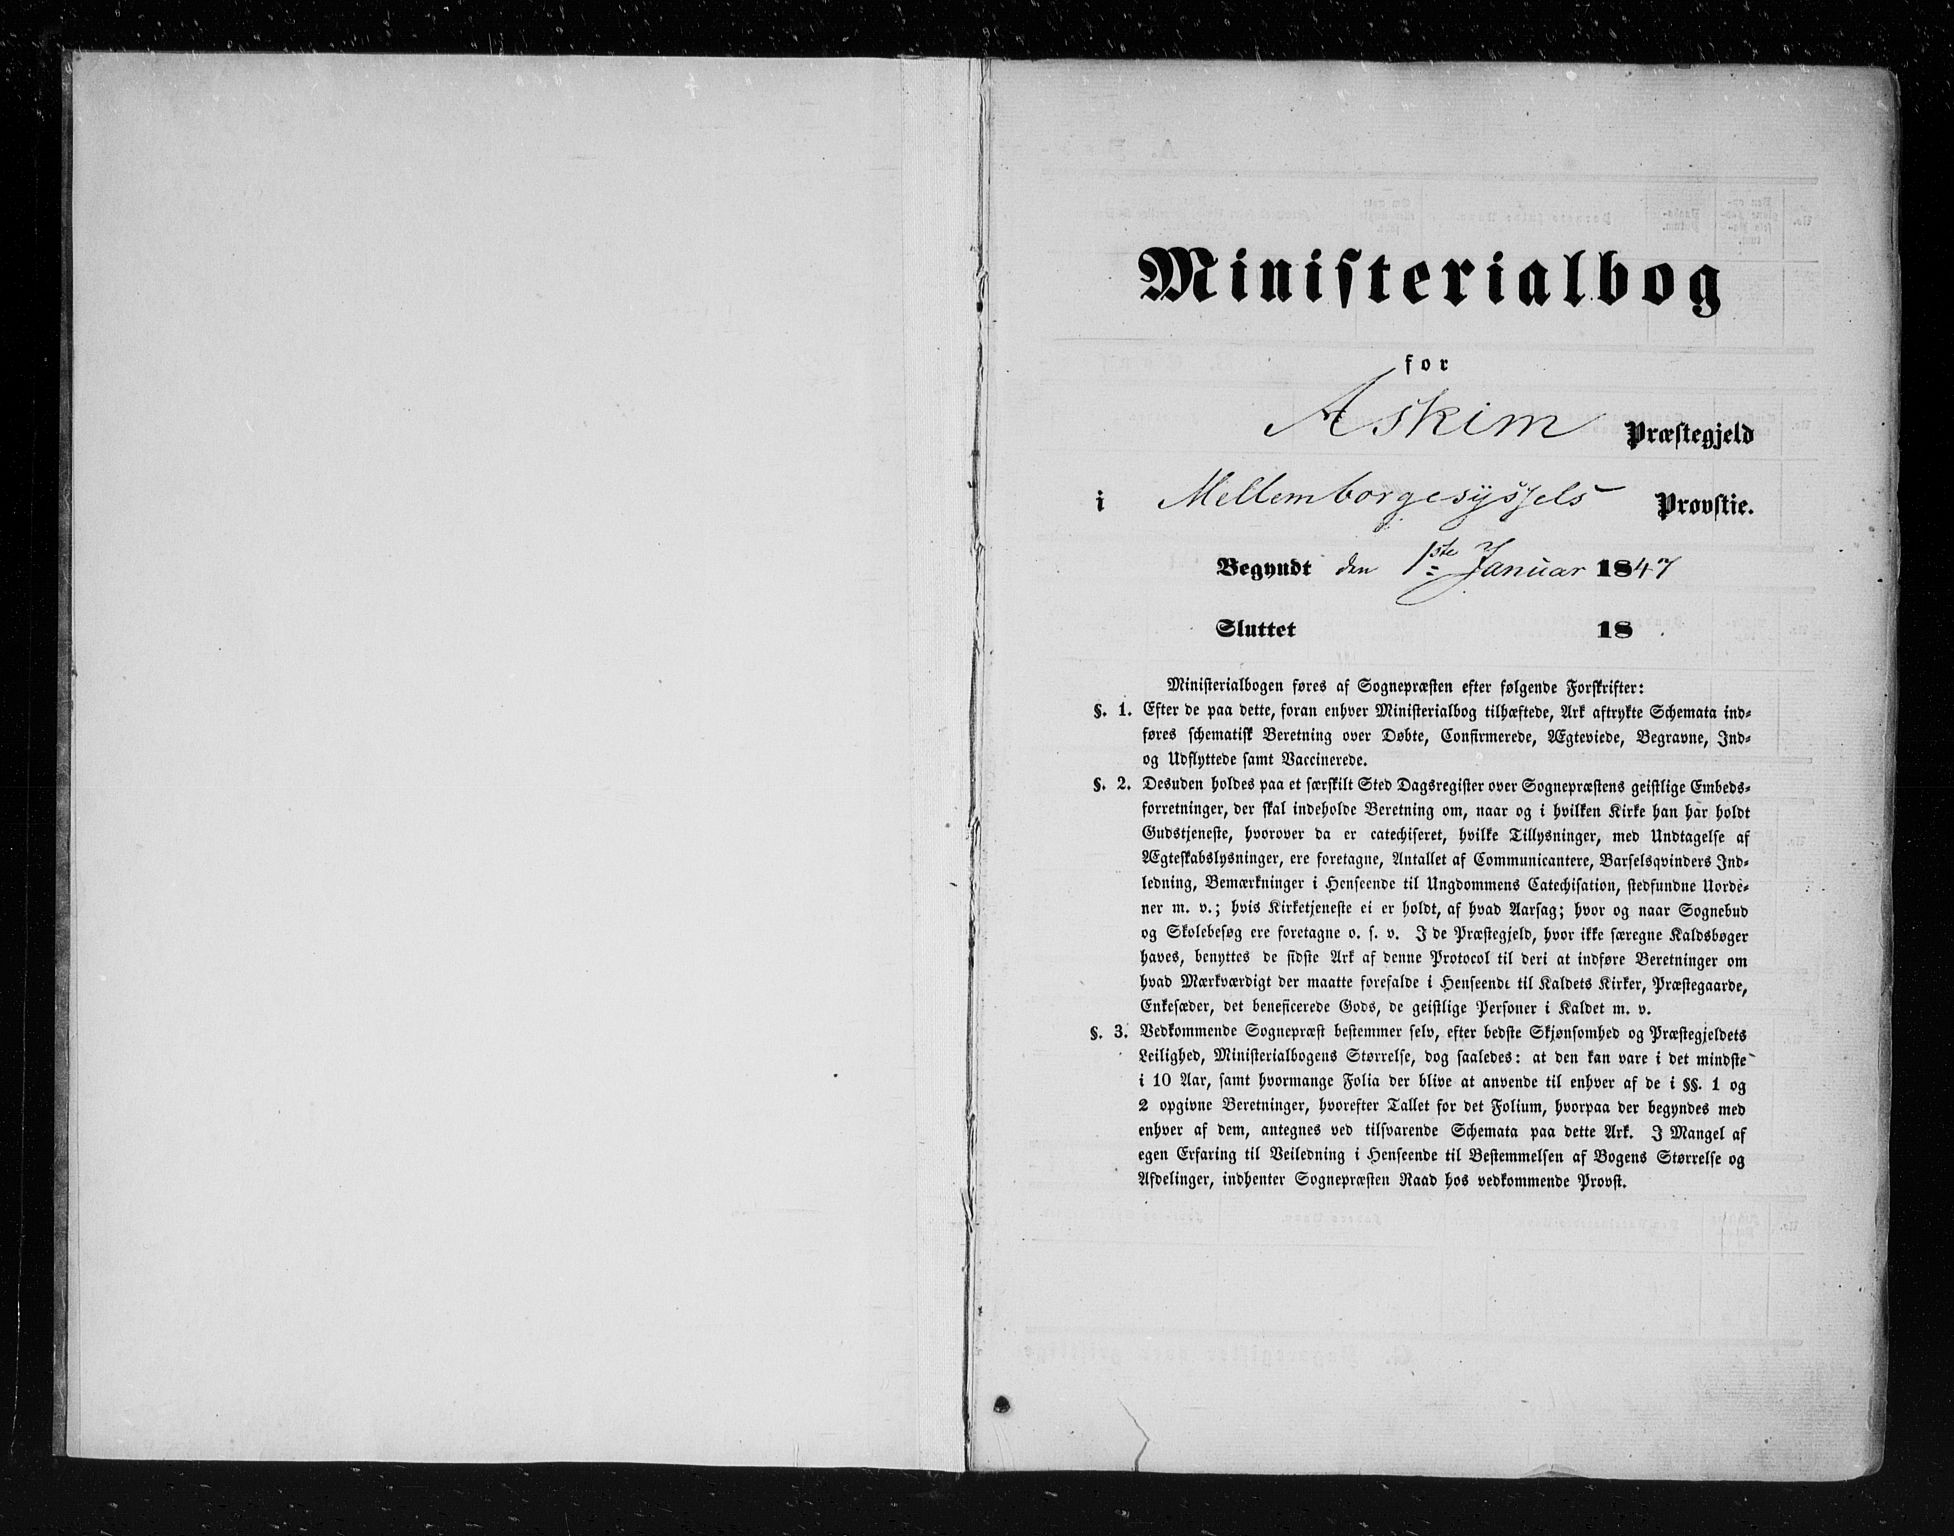 Ministerialbog
for
Askim Præstegjeld
i Mellemborgesyssels Provstie.
Begyndt den 1ste Januar 1847
Sluttet 18
Ministerialbogen føres af Sognepræsten efter følgende Forskrifter:
§. 1. Efter de paa dette, foran enhver Ministerialbog tilhæftede, Ark aftrykte Schemata ind-
føres schematisk Beretning over Døbte, Confirmerede, Ægteviede, Begravne, Ind-
og Udflyttede samt Vaccinerede.
§. 2. Desuden holdes paa et særskilt Sted Dagsregister over Sognepræstens geistlige Embeds-
forretninger, der skal indeholde Beretning om, naar og i hvilken Kirke han har holdt
Gudstjeneste, hvorover da er catechiseret, hvilke Tillysninger, med Undtagelse af
Ægteskabslysninger, ere foretagne, Antallet af Communicantere, Barselsqvinders Ind-
ledning, Bemærkninger i Henseende til Ungdommens Catechisation, stedfundne Uorde-
ner m. v.; hvis Kirketjeneste ei er holdt, af hvad Aarsag; hvor og naar Sognebud
og Skolebesøg ere foretagne o. s. v. I de Præstegjeld, hvor ikke særegne Kaldsbøger
haves, benyttes de sidste Ark af denne Protocol til deri at indføre Beretninger om
hvad Mærkværdigt der maatte forefalde i Henseende til Kaldets Kirker, Præstegaarde,
Enkesæder, det beneficerede Gods, de geistlige Personer i Kaldet m. v.
§. 3. Vedkommende Sognepræst bestemmer selv, efter bedste Skjønsomhed og Præstegjeldets
Leilighed, Ministerialbogens Størrelse, dog saaledes: at den kan vare i det mindste
i 10 Aar, samt hvormange Folia der blive at anvende til enhver af de i §§. 1 og
2 opgivne Beretninger, hvorefter Tallet for det Folium, hvorpaa der begyndes med
enhver af dem, antegnes ved tilsvarende Schemata paa dette Ark. I Mangel af
egen Erfaring til Veiledning i Henseende til Bestemmelsen af Bogens Størrelse og
Afdelinger, indhenter Sognepræsten Raad hos vedkommende Provst.